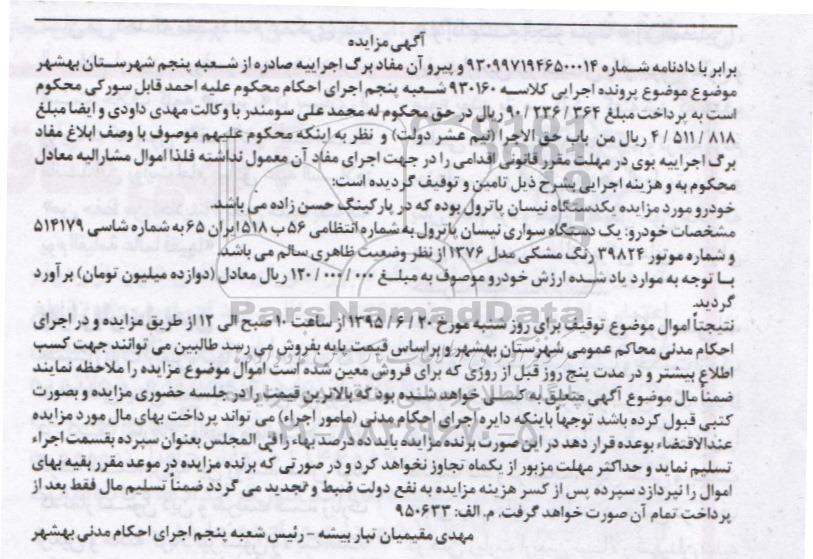 آگهی مزایده
برابر با دادنامه شماره ۹۳۰۹۹۷۱۹۴۶۵۰۰۰۱۴ و پیرو آن مفاد برگ اجراییه صادره از شعبه پنجم شهرستان بهشهر
موضوع موضوع پرونده اجرایی کلاسه ۹۳۰۱۶۰ شعبه پنجم اجرای احکام محکوم علیه احمد قابل سورکی محکوم
است به پرداخت مبلغ ۹۰/۲۳۶/۳۶۴ ریال در حق محکوم له محمد علی سومندر با وکالت مهدی داودی و ایضا مبلغ
۴/۵۱۱/۸۱۸ ریال من باب حق الاجرا (نیم عشر دولت) و نظر به اینکه محکوم علیهم موصوف با وصف ابلاغ مفاد
برگ اجراییه بوی در مهلت مقرر قانونی اقدامی را در جهت اجرای مفاد آن معمول نداشته فلذا اموال مشارالیه معادل
محکوم به و هزینه اجرایی بشرح ذیل تامین و توقیف گردیده است:
خودرو مورد مزایده یکدستگاه نیسان پاترول بوده که در پارکینگ حسن زاده می باشد.
مشخصات خودرو: یک دستگاه سواری نیسان پاترول به شماره انتظامی ۵۶ ب ۵۱۸ ایران ۶۵ به شماره شاسی ۵۱۴۱۷۹
و شماره موتور ۳۹۸۲۴ رنگ مشکی مدل ۱۳۷۶ از نظر وضعیت ظاهری سالم می باشد.
با توجه به موارد یاد شده ارزش خودرو موصوف به مبلغ ۱۲۰/۰۰۰/۰۰۰ ریال معادل (دوازده میلیون تومان) برآورد
گردید.
نتیجتاً اموال موضوع توقیف برای روز شنبه مورخ ۱۳۹۵/۶/۲۰ از ساعت ۱۰ صبح الی ۱۲ از طریق مزایده و در اجرای
احکام مدنی محاکم عمومی شهرستان بهشهر و براساس قیمت پایه بفروش می رسد طالبین می توانند جهت کسب
اطلاع بیشتر و در مدت پنج روز قبل از روزی که برای فروش معین شده است اموال موضوع مزایده را ملاحظه نمایند
ضمناً مال موضوع آگهی متعلق به کسی خواهد شده بود که بالاترین قیمت را در جلسه حضوری مزایده و بصورت
کتبی قبول کرده باشد توجهاً باینکه دایره اجرای احکام مدنی (مامور اجراء) می تواند پرداخت بهای مال مورد مزایده
عندالاقتضاء بوعده قرار دهد در این صورت برنده مزایده باید ده درصد بهاء را فی المجلس بعنوان سپرده بقسمت اجراء
تسلیم نماید و حداکثر مهلت مزبور از یکماه تجاوز نخواهد کرد و در صورتی که برنده مزایده در موعد مقرر بقیه بهای
اموال را نپردازد سپرده پس از کسر هزینه مزایده به نفع دولت ضبط و تجدید می گردد ضمناً تسلیم مال فقط بعد از
پرداخت تمام آن صورت خواهد گرفت. م.الف: ۹۵۰۶۳۳
مهدی مقیمیان تیار پیشه – رئیس شعبه پنجم اجرای احکام مدنی بهشهر
ParsNamadData